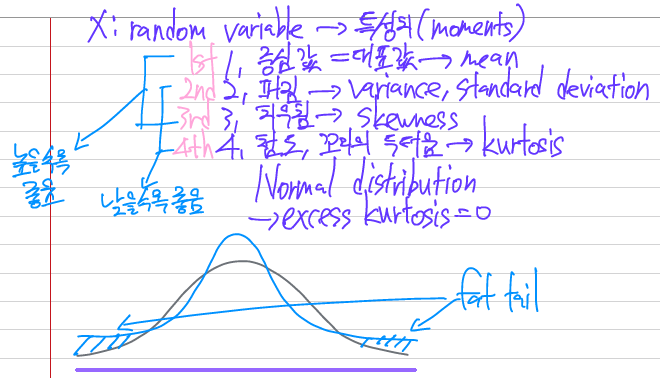 X: random variable → 특성의(moments)
1st 1, 중심값 = 대표값 → mean
2nd 2, 퍼짐 → variance, standard deviation
3rd 3, 치우침 → skewness
4th 4, 첨도, 꼬리의 두터움 → kurtosis
높을수록
좋음
낮을수록 좋음
Normal distribution
→ excess kurtosis = 0
fat tail